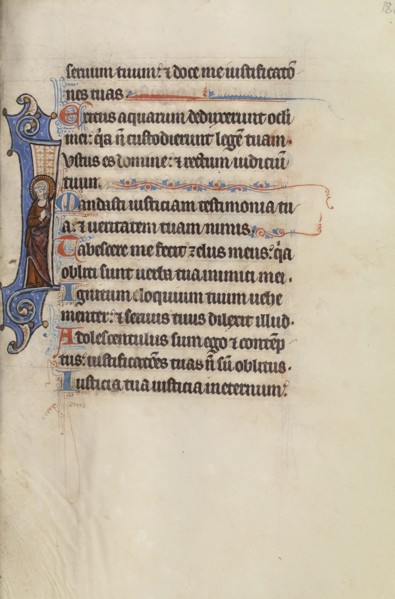 seruum tuum: ⁊ doce me iustificatō
nes tuas
Exitus aquarum deduxerunt oculi
mei: q̄a n̄ custodierunt legē tuam.
Iustus es domine: ⁊ rectum iudiciū
tuum.
Mandasti iusticiam testimonia tu
a: ⁊ ueritatem tuam nimis.
Tabescere me fecit zelus meus: q̄a
obliti sunt uerba tua inimici mei.
Ignitum eloquium tuum uehe
menter: ⁊ seruus tuus dilexit illud.
Adolescentulus sum ego ⁊ contēp
tus: iustificatōes tuas n̄ sū oblitus.
Iusticia tua iusticia in eternum: